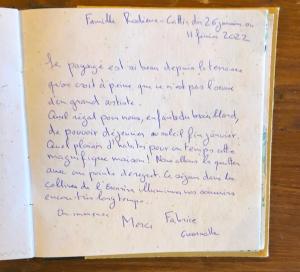 Famille Rodière-Cottin du 26 janvier au
11 février 2022
Le paysage est si beau depuis la terrasse
qu'on croit à peine que ce n'est pas l'œuvre
d'un grand artiste.
Quel régal pour nous, enfants du brouillard,
de pouvoir déjeuner au soleil fin janvier.
Quel plaisir d'habiter pour un temps cette
magnifique maison ! Nous allons la quitter
avec une pointe de regret. Ce séjour dans les
collines de l' illuminera nos souvenirs
encore très longtemps...
Un immense Merci
Fabrice